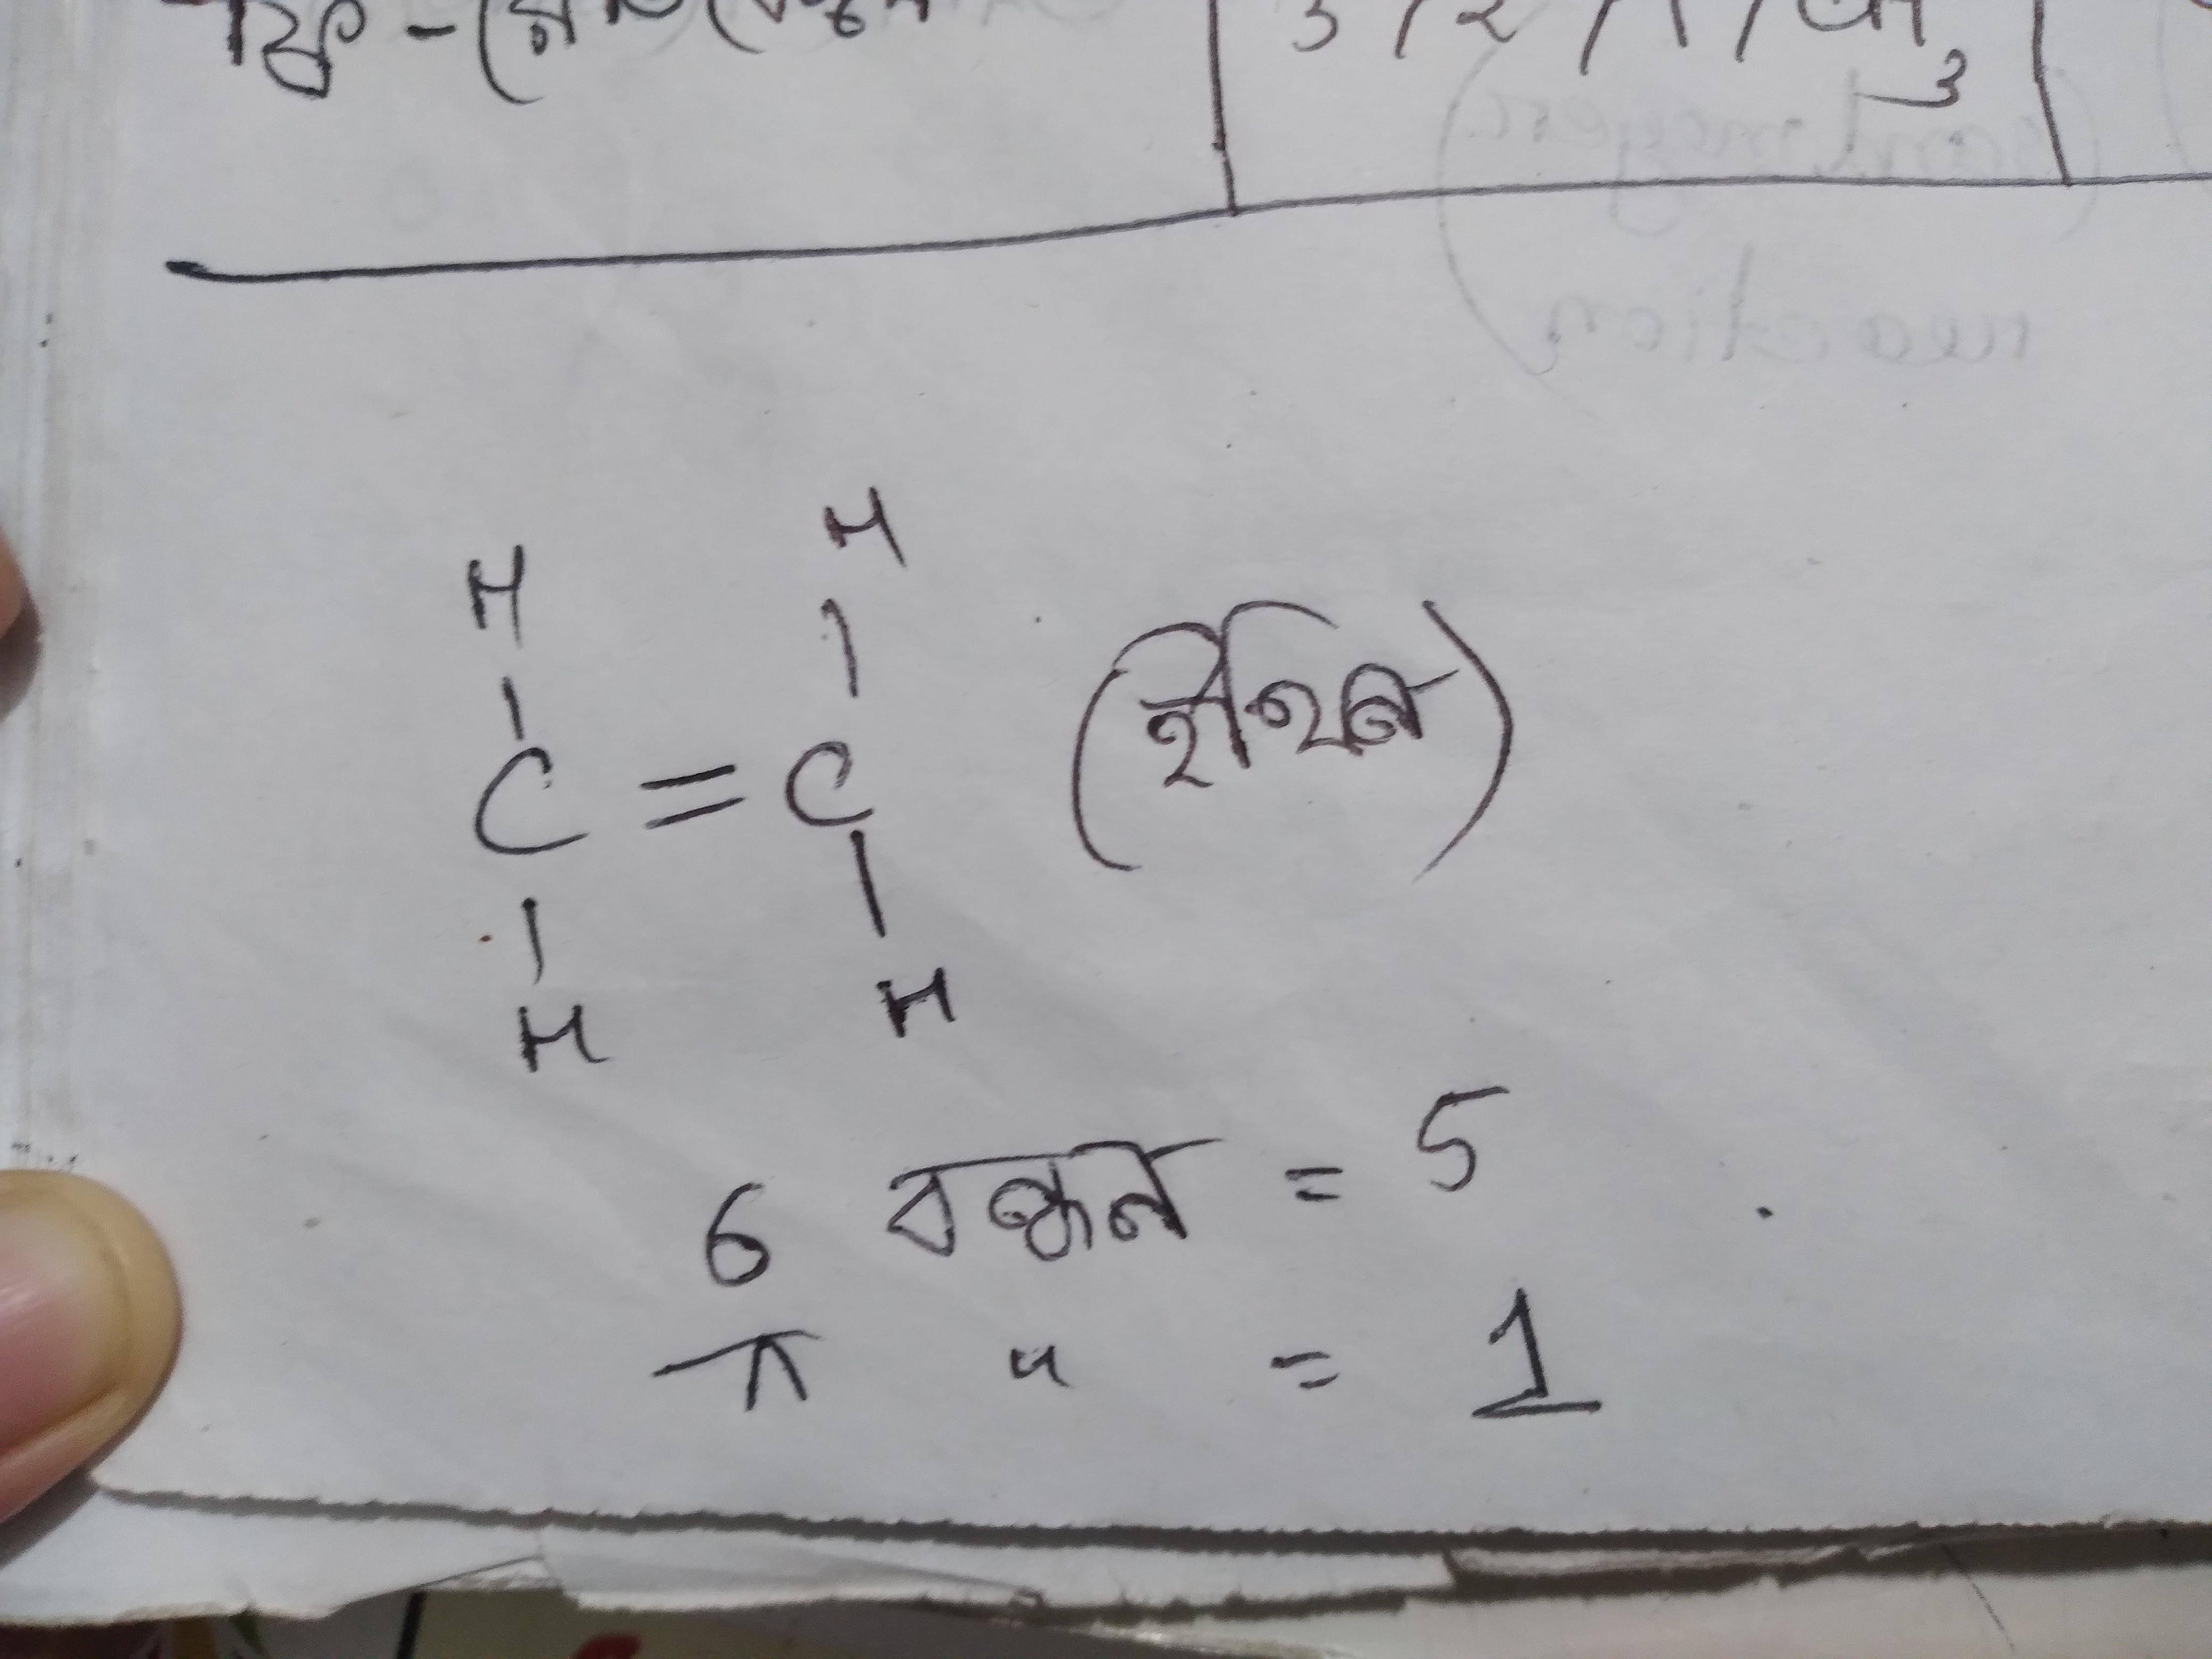 3 / 2 / 1 /
3
H H
C = C (ইথিন)
H H
6 বন্ধন = 5
π " = 1